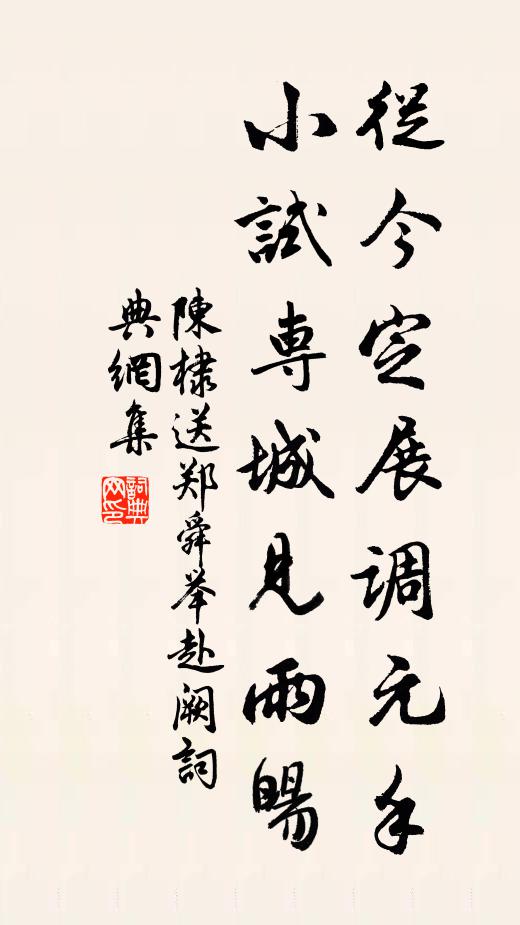 從今定展調元手
小試専城見雨暘
陳棣送郑舜举赴阙詞
典網集
詞典
网印